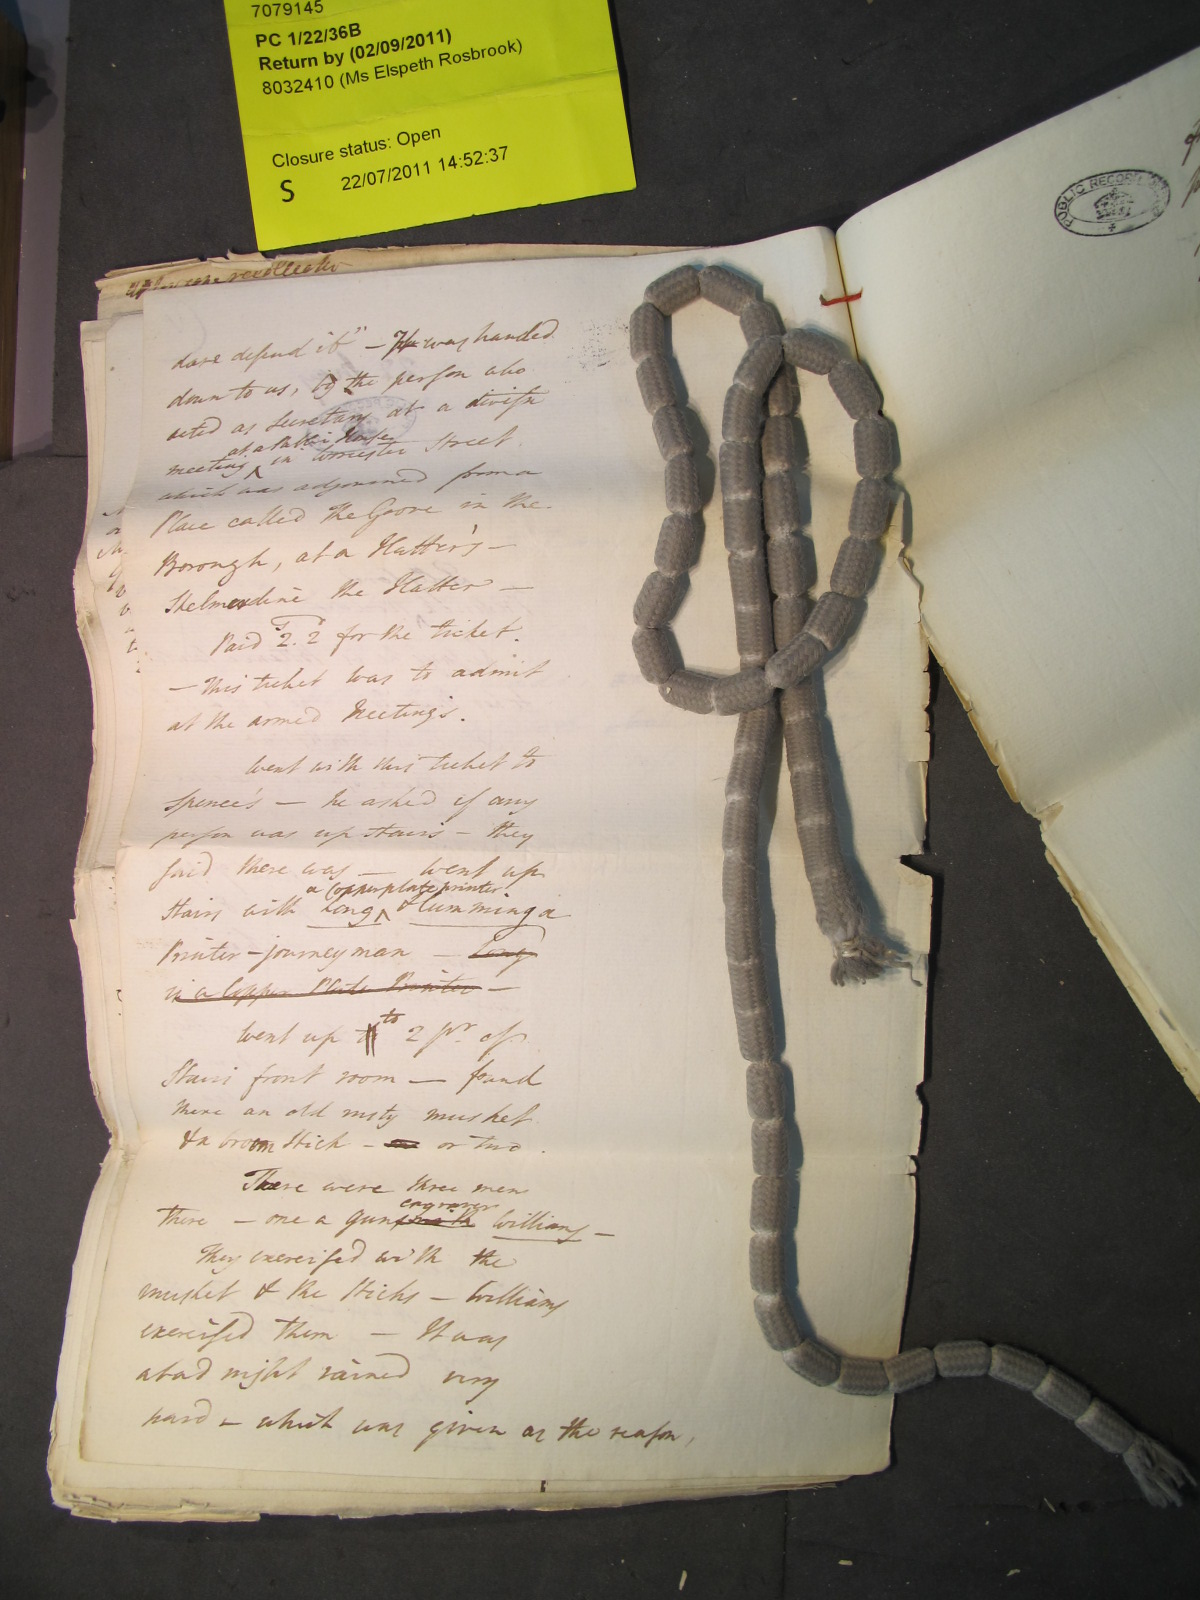 7079145
PC 1/22/36B
Return by (02/09/2011)
8032410 (Ms Elspeth Rosbrook)
Closure status: Open
S 22/07/2011 14:52:37
PUBLIC RECORD
recollects
dare defend it" – He was handed
down to us, by the person who
acted as Secretary at a divisn
at a Public House
meeting in Worcester Street
which was adjourned from a
Place called the Grove in the
Borough, at a Hatter's –
Skelmerdine the Hatter –
Paid 2.2 for the ticket.
– this ticket was to admit
at the armed Meetings.
Went with this ticket to
Spence's – he asked if any
person was up stairs – they
said there was – went up
a Copperplate printer
Stairs with Long & Humming a
Printer – journeyman – Long
is a Copper Plate Printer –
Went up to 2 pr. of
Stairs front room – found
there an old rusty musket
& a broom Stick – or two.
There were three men
engraver
there – one a gunsmith Williams –
They exercised with the
musket & the Sticks – Williams
exercised them – It was
a bad night rained very
hard – which was given as the reason,